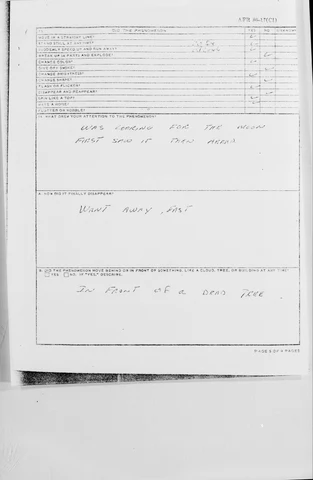 AFR 80-17(C1)
DID THE PHENOMENON YES NO UNKNOWN
MOVE IN A STRAIGHT LINE?
STAND STILL AT ANY TIME?
SUDDENLY SPEED UP AND RUN AWAY?
BREAK UP IN PARTS AND EXPLODE?
CHANGE COLOR?
GIVE OFF SMOKE?
CHANGE BRIGHTNESS?
CHANGE SHAPE?
FLASH OR FLICKER?
DISAPPEAR AND REAPPEAR?
SPIN LIKE A TOP?
MAKE A NOISE?
FLUTTER OR WOBBLE?
WHAT DREW YOUR ATTENTION TO THE PHENOMENON?
WAS LOOKING FOR THE MOON
FIRST SAW IT THEN
A. HOW DID IT FINALLY DISAPPEAR?
WENT AWAY FAST
B. DID THE PHENOMENON MOVE BEHIND OR IN FRONT OF SOMETHING, LIKE A CLOUD, TREE, OR BUILDING AT ANY TIME?
YES NO. IF "YES," DESCRIBE.
IN FRONT OF A DEAD TREE
PAGE 3 OF 4 PAGES